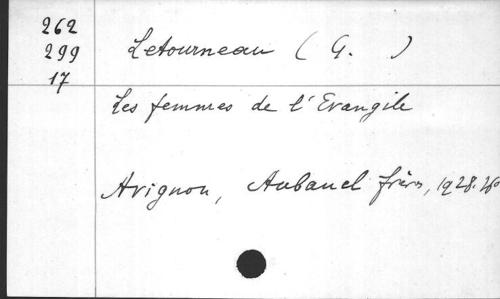 262
299
17
Letourneau ( G. )
Les femmes de l'Evangile
Avignon, Aubanel frères, 1928. 16°